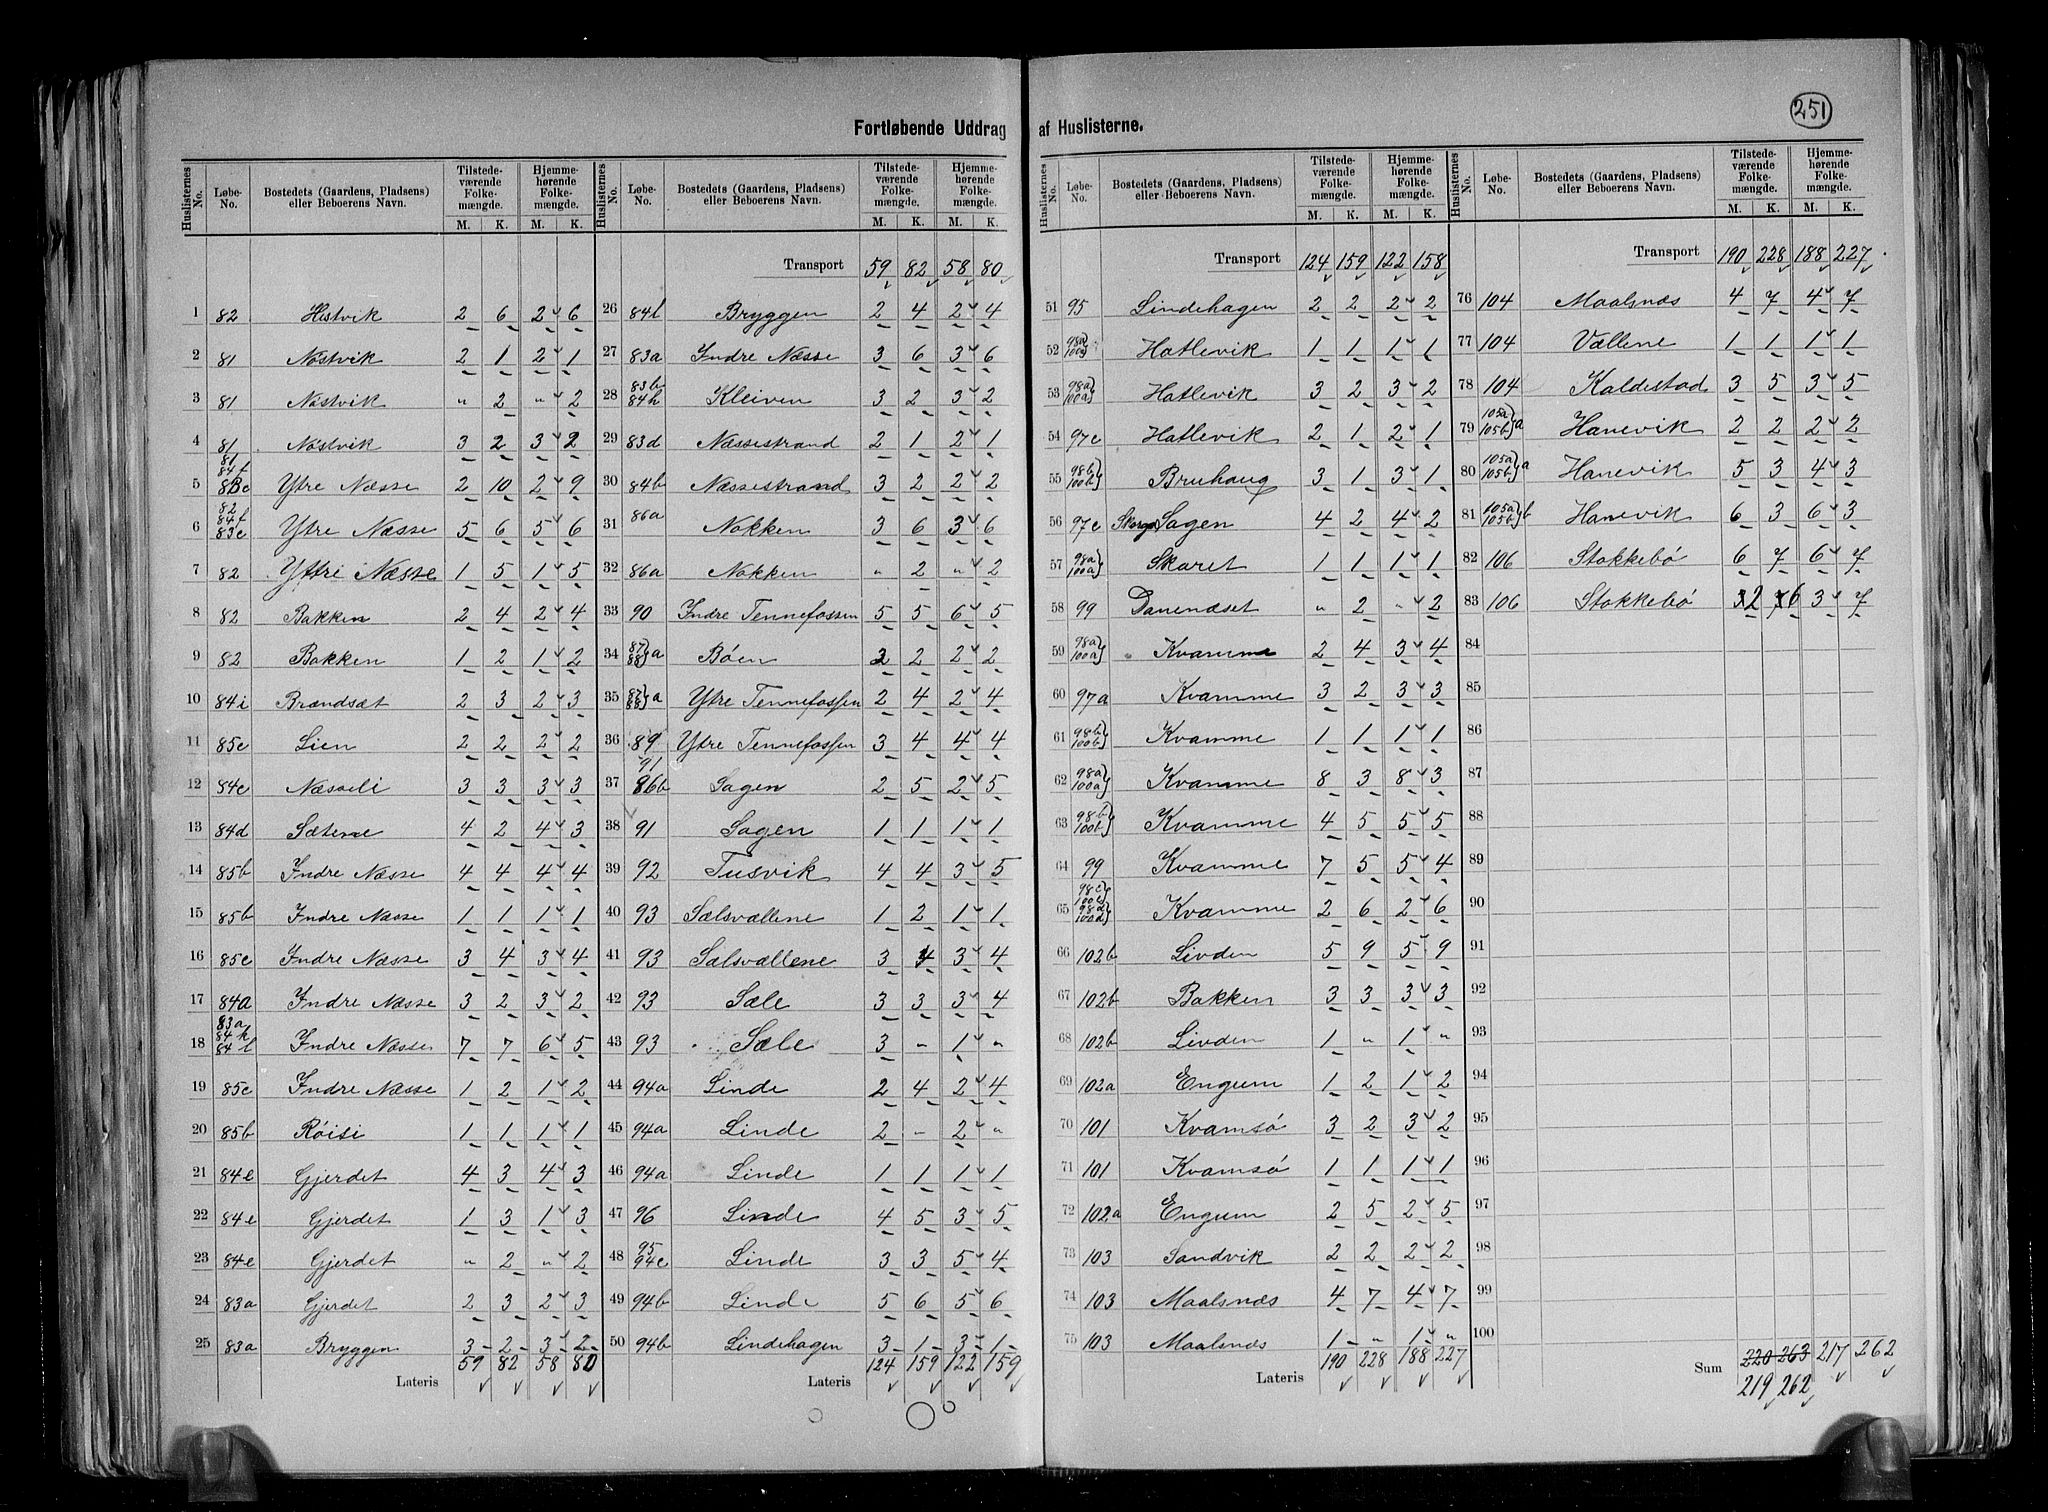 251
Fortløbende Uddrag af Huslisterne.
Huslisternes No. Løbe-No. Bostedets (Gaardens, Pladsens) eller Beboerens Navn. Tilstedeværende Folkemængde. M. K. Hjemmehørende Folkemængde. M. K.
1 82 Histvik 2 6 2 6
2 81 Nöstvik 2 1 2 1
3 81 Nöstvik " 2 " 2
4 81 Nöstvik 3 2 3 2
5 81 84f 83c Ytre Næsse 2 10 2 9
6 82 84f 83c Ytre Næsse 5 6 5 6
7 82 Yttri Næsse 1 5 1 5
8 82 Bakken 2 4 2 4
9 82 Bakken 1 2 1 2
10 84i Brændsæt 2 3 2 3
11 85c Lien 2 2 2 2
12 84c Næsseli 3 3 3 3
13 84d Sætene 4 2 4 3
14 85b Indre Næsse 4 4 4 4
15 85b Indre Næsse 1 1 1 1
16 85c Indre Næsse 3 4 3 4
17 84a Indre Næsse 3 2 3 2
18 83a 84k 84l Indre Næsse 7 7 6 5
19 85c Indre Næsse 1 2 1 2
20 85b Röisi 1 1 1 1
21 84e Gjerdet 4 3 4 3
22 84e Gjerdet 1 3 1 3
23 84e Gjerdet " 2 " 2
24 83a Gjerdet 2 3 2 3
25 83a Bryggen 3 2 3 2
Lateris 59 82 58 80
Huslisternes No. Løbe-No. Bostedets (Gaardens, Pladsens) eller Beboerens Navn. Tilstedeværende Folkemængde. M. K. Hjemmehørende Folkemængde. M. K.
Transport 59 82 58 80
26 84l Bryggen 2 4 2 4
27 83a Indre Næsse 3 6 3 6
28 83b 84h Kleiven 3 2 3 2
29 83d Næssestrand 2 1 2 1
30 84b Næssestrand 3 2 2 2
31 86a Nokken 3 6 3 6
32 86a Nokken " 2 " 2
33 90 Indre Tennefossen 5 5 6 5
34 87 88}a Böen 2 2 2 2
35 87 88}a Ytre Tennefossen 2 4 2 4
36 89 Ytre Tennefossen 3 4 4 4
37 91 86b Sagen 2 5 2 5
38 91 Sagen 1 1 1 1
39 92 Tusvik 4 4 3 5
40 93 Sælsvællene 1 2 1 1
41 93 Sælsvællene 3 4 3 4
42 93 Sæle 3 3 3 4
43 93 Sæle 3 " 1 "
44 94a Linde 2 4 2 4
45 94a Linde 2 " 2 "
46 94a Linde 1 1 1 1
47 96 Linde 4 5 3 5
48 95 94c Linde 3 3 5 4
49 94b Linde 5 6 5 6
50 94b Lindehagen 3 1 3 1
Lateris 124 159 122 159
Huslisternes No. Løbe-No. Bostedets (Gaardens, Pladsens) eller Beboerens Navn. Tilstedeværende Folkemængde. M. K. Hjemmehørende Folkemængde. M. K.
Transport 124 159 122 158
51 95 Lindehagen 2 2 2 2
52 98a 100a Hatlevik 1 1 1 1
53 98a} 100a} Hatlevik 3 2 3 2
54 97c Hatlevik 2 1 2 1
55 98b} 100b} Bruhaug 3 1 3 1
56 97c Sagen 4 2 4 2
57 98a} 100a} Skaret 1 1 1 1
58 99 Danenæset " 2 " 2
59 98a} 100a} Kvamme 2 4 3 4
60 97a Kvamme 3 2 3 3
61 98b} 100b} Kvamme 1 1 1 1
62 98a} 100a} Kvamme 8 3 8 3
63 98b} 100b} Kvamme 4 5 5 5
64 99 Kvamme 7 5 5 4
65 98c} 100c} 98d} 100d} Kvamme 2 6 2 6
66 102b Linden 5 9 5 9
67 102b Bakken 3 3 3 3
68 102b Linden 1 " 1 "
69 102a Engum 1 2 1 2
70 101 Kvamsö 3 2 3 2
71 101 Kvamsö 1 1 1 1
72 102a Engum 2 5 2 5
73 103 Sandvik 2 2 2 2
74 103 Maalsnæs 4 7 4 7
75 103 Maalsnæs 1 " 1 "
Lateris 190 228 188 227
Huslisternes No. Løbe-No. Bostedets (Gaardens, Pladsens) eller Beboerens Navn. Tilstedeværende Folkemængde. M. K. Hjemmehørende Folkemængde. M. K.
Transport 190 228 188 227
76 104 Maalsnæs 4 7 4 7
77 104 Vællene 1 1 1 1
78 104 Kaldestad 3 5 3 5
79 105a 105b}a Hanevik 2 2 2 2
80 105a 105b}a Hanevik 5 3 4 3
81 105a 105b}b Hanevik 6 3 6 3
82 106 Stokkebö 6 7 6 7
83 106 Stokkebö 2 6 3 7
84
85
86
87
88
89
90
91
92
93
94
95
96
97
98
99
100
Sum 220 263 217 262
219 262